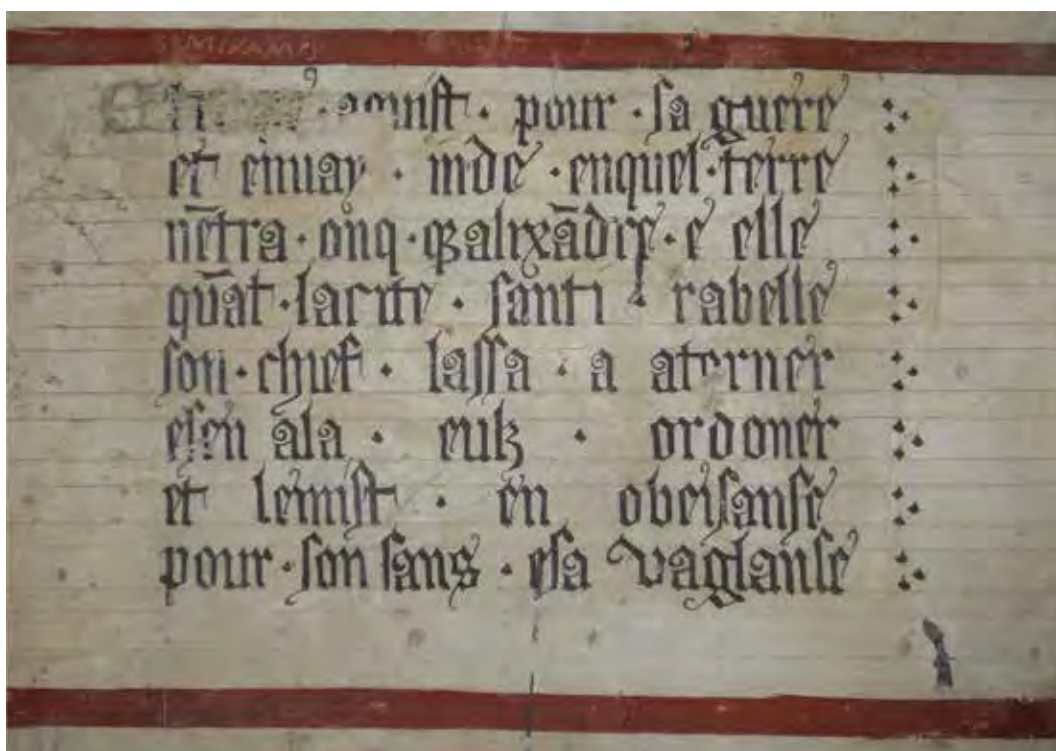 SEMIRAMIS
· aquist · pour · sa guere
et enuay · inde · enquel · terre
nētra · onq · q̄ alixādre · e elle
qūat · lacite · santi · rabelle
son · chief · lassa · a aterner
esen ala · eulz · ordoner
et lemist · en obeisanse
pour · son sans · esa vaglanse